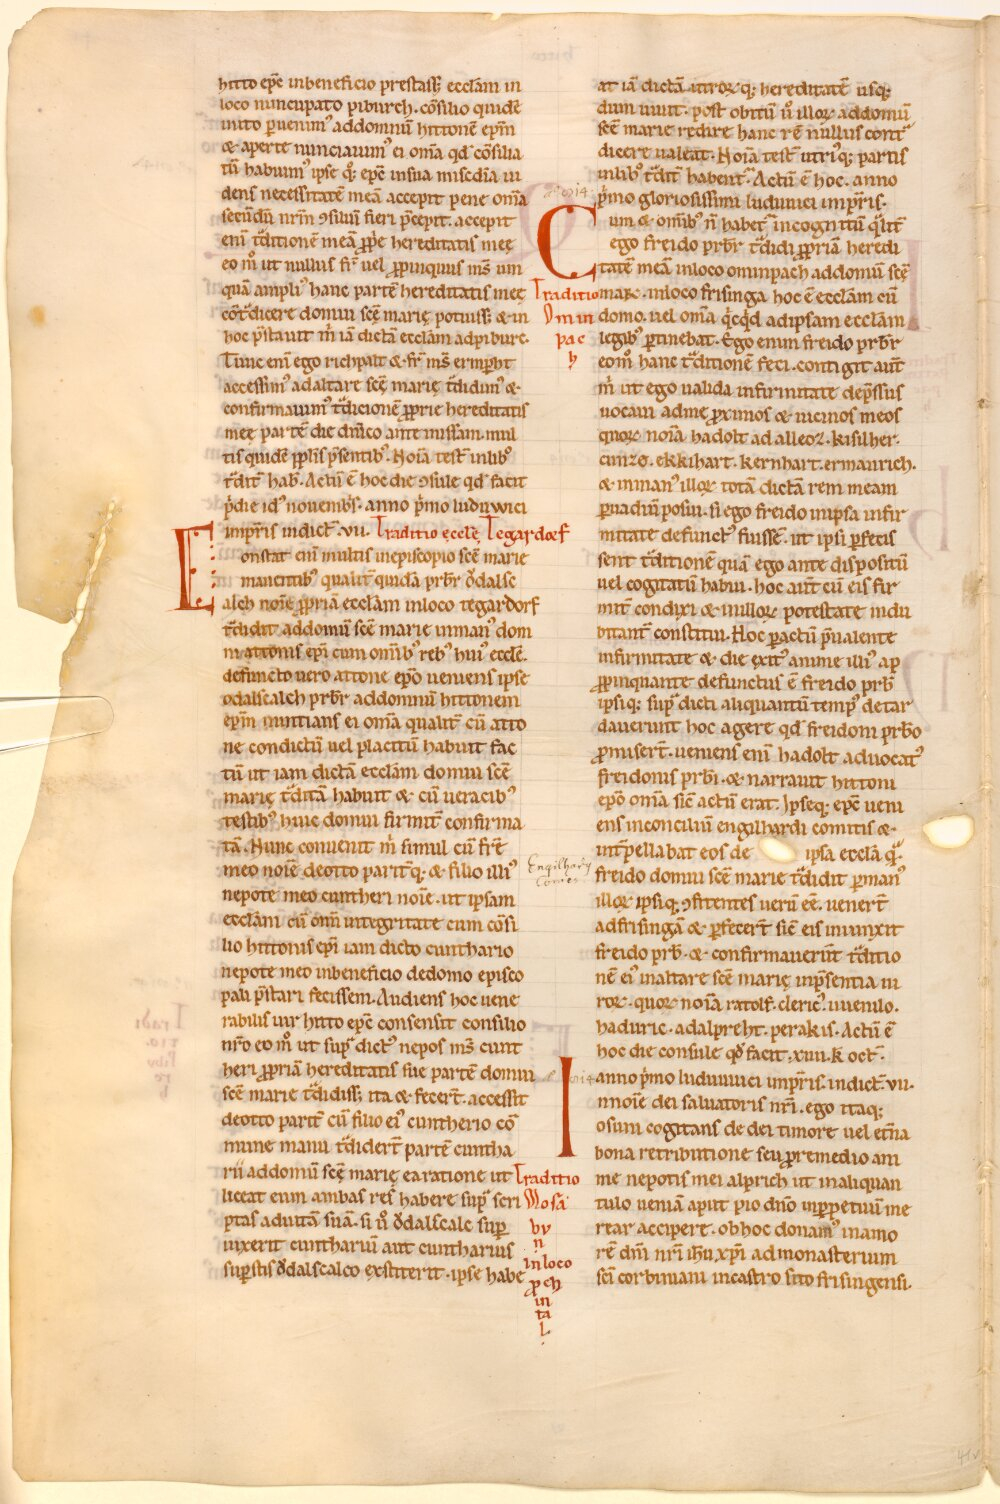 hitto ep̄c inbeneficio prestass; eccl̄am in
loco nuncupato piburch. cōsilio quidē
inito ꝑuenim᷒ addomnū hittonē ep̄m
& aperte nunciauim᷒ ei om̄a qd̄ cōsilia
tū habuim᷒ ipse q̊; ep̄c insua misc̄dia ui
dens necessitatē meā accepit pene om̄a
secūdū nr̄m ↄsiliū fieri p̄cepit. accepit
enī tᷓditionē meā ꝓpͥe hereditatis meę
eo m̊ ut nullus fr̄ uel ꝓpinquus ms̄ um
quā ampli᷒ hanc partē hereditatis meę
cōtᷓdicere domui scē marię potuiss; & in
hoc p̄stauit m̄ iā dictā eccl̄am adpibure.
Tunc enī ego richpalt & fr̄ ms̄ ermp̄ht
accessim᷒ adaltare scē marię tᷓdidim᷒ &
confirmauim᷒ tᷓdicionē ꝓprie hereditatis
meę partē die dn̄ico ante missam. mul
tis quidē ppl̄is p̄sentib᷒. Noīa test̄ inlib᷒
tᷓdit̄ hab̄. Actū ē hoc die ↄsule qd̄ facit
p̄die id᷒ novemb̄s. anno p̄mo luduwici
imp̄ris indict̄. vii. Traditio eccl̄ę Tegardorf
Constat enī multis inepiscopio scē marie
manentib᷒ qualit̄ quidā pr̄br ǒdalsc
alch noīe ꝓpriā eccl̄am inloco tegardorf
tᷓdidit addomū scē marie inman᷒ dom
ni attonis ep̄i cum om̄ib᷒ reb᷒ hui᷒ eccl̄ę.
defuncto uero attone ep̄o ueniens ipse
odalscalch pr̄br addomnū hittonem
ep̄m nuntians ei om̄a qualit̄ cū atto
ne condictū uel placitū habuit fac
tū ut iam dictā eccl̄am domui scē
marię tᷓditā habuit & cū ueracib᷒
testib᷒ huic domui firmit̄ confirma
tā. Nunc conuenit m̄ simul cū fr̄e
meo noīe deotto parit̄q; & filio illi᷒
nepote meo cuntheri noīe. ut ipsam
eccl̄am cū om̄i integritate cum cōsi
lio hittonis ep̄i iam dicto cunthario
nepote meo inbeneficio dedomo episco
pali p̄stari fecissem. Audiens hoc uene
rabilis uir hitto ep̄c consensit consilio
nr̄o eo m̊ ut supᷓ dict᷒ nepos ms̄ cunt
heri ꝓpriā hereditatis suę partē domui
scē marie tᷓdidiss; ita & fecer̄t. accessit
deotto parit̄ cū filio ei᷒ cuntherio cō
mune manu tᷓdider̄t partē cuntha
rii addomū scē marię ea ratione ut
liceat eum ambas res habere supᷓ scri
ptas aduitā suā. si n̊ ǒdalscalc sup
uixerit cuntharium aut cuntharius
suꝑstis ǒdalscalco exstiterit. ipse habe
at iā dictā utrorꝫq; hereditatē usq;
dum uiuit. post obitū n̊ illorꝫ addomū
scē marie redire hanc rē nullus contᷓ
dicere ualeat. Noīa test̄ utri᷒q; partis
inlib᷒ tᷓdit̄ habent᷒. Actū ē hoc. anno
p̄mo gloriosissimi luduuici imp̄ris.
Cum & om̄ib᷒ n̄ habet᷒ incognitū qͣlit̄
ego freido pr̄br tᷓdidi ꝓpriā heredi
tatē meā inloco oninpach addomū scē
marꝫ. inloco frisinga hoc ē eccl̄am cū
domo. uel om̄a qͥcqͥd adipsam eccl̄am
legib᷒ ꝑtinebat. Ego enim freido pr̄br
eom̊ hanc tᷓditionē feci. contigit aūt
m̄ ut ego ualida infirmitate dep̄ssus
uocaui adme ꝓximos & uicinos meos
quorꝫ noīa hadolt ad alleoz. kisilher.
cunzo. ekkihart. kernhart. ermanrich.
& inman᷒ illorꝫ totā dictā rem meam
ꝑuadiū posui. si ego freido inipsa infir
mitate defunct᷒ fuissē. ut ipsi ꝑfecis
sent tᷓditionē quā ego ante dispositū
uel cogitatū habui. hoc aūt cū eis fir
mit̄ condixi & inillorꝫ potestate indu
bitant̄ constitui. Hoc ꝑactū p̄ualente
infirmitate & die exit᷒ anime illi᷒ ap
ꝓpinquante defunctus ē freido pr̄b
ipsiq; supᷓ dicti aliquantū temp᷒ detar
dauerunt hoc agere qd̄ freidoni pr̄bo
ꝓmiser̄t. ueniens enī hadolt aduocat᷒
freidonis pr̄bi. & narrauit hittoni
ep̄o om̄a sic̄ actū erat. Ipseq; ep̄c ueni
ens inconciliū engilhardi comitis &
int̄pellabat eos de ipsa eccl̄a qͣ
freido domui scē marie tᷓdidit ꝑman᷒
illorꝫ ipsiq; ↄfitentes uerū eē. uener̄t
adfrisingā & ꝑfecer̄t sic̄ eis iniunxit
freido pr̄b. & confirmauer̄t tᷓditio
nē ei᷒ inaltare scē marię inp̄sentia iu
rorꝫ. quorꝫ noīa ratolf. cleric᷒. iuuenilo.
haduric. adalpreht. perakis. Actū ē
hoc die consule qd̄ facit. xviii. k̄ oct̄.
anno p̄mo luduuuici imp̄ris. indict̄. vii.
In noīe dei saluatoris nr̄i. ego itaq;
osuni cogitans de dei timore uel et̄na
bona retributione seu ꝓremedio ani
me nepotis mei alprich ut inaliquan
tulo ueniā aput pio dn̄o inꝑpetuū me
rear accipere. ob hoc donam᷒ inamo
rē dn̄i nr̄i ih̄u xp̄i ad monasterium
sc̄i corbiniani incastro sito frisingensi.
Traditio
Onin
pac
h
Engilhart
comes
Traditio
Mosa
by
n
inloco
ꝓch
in
ta
l.